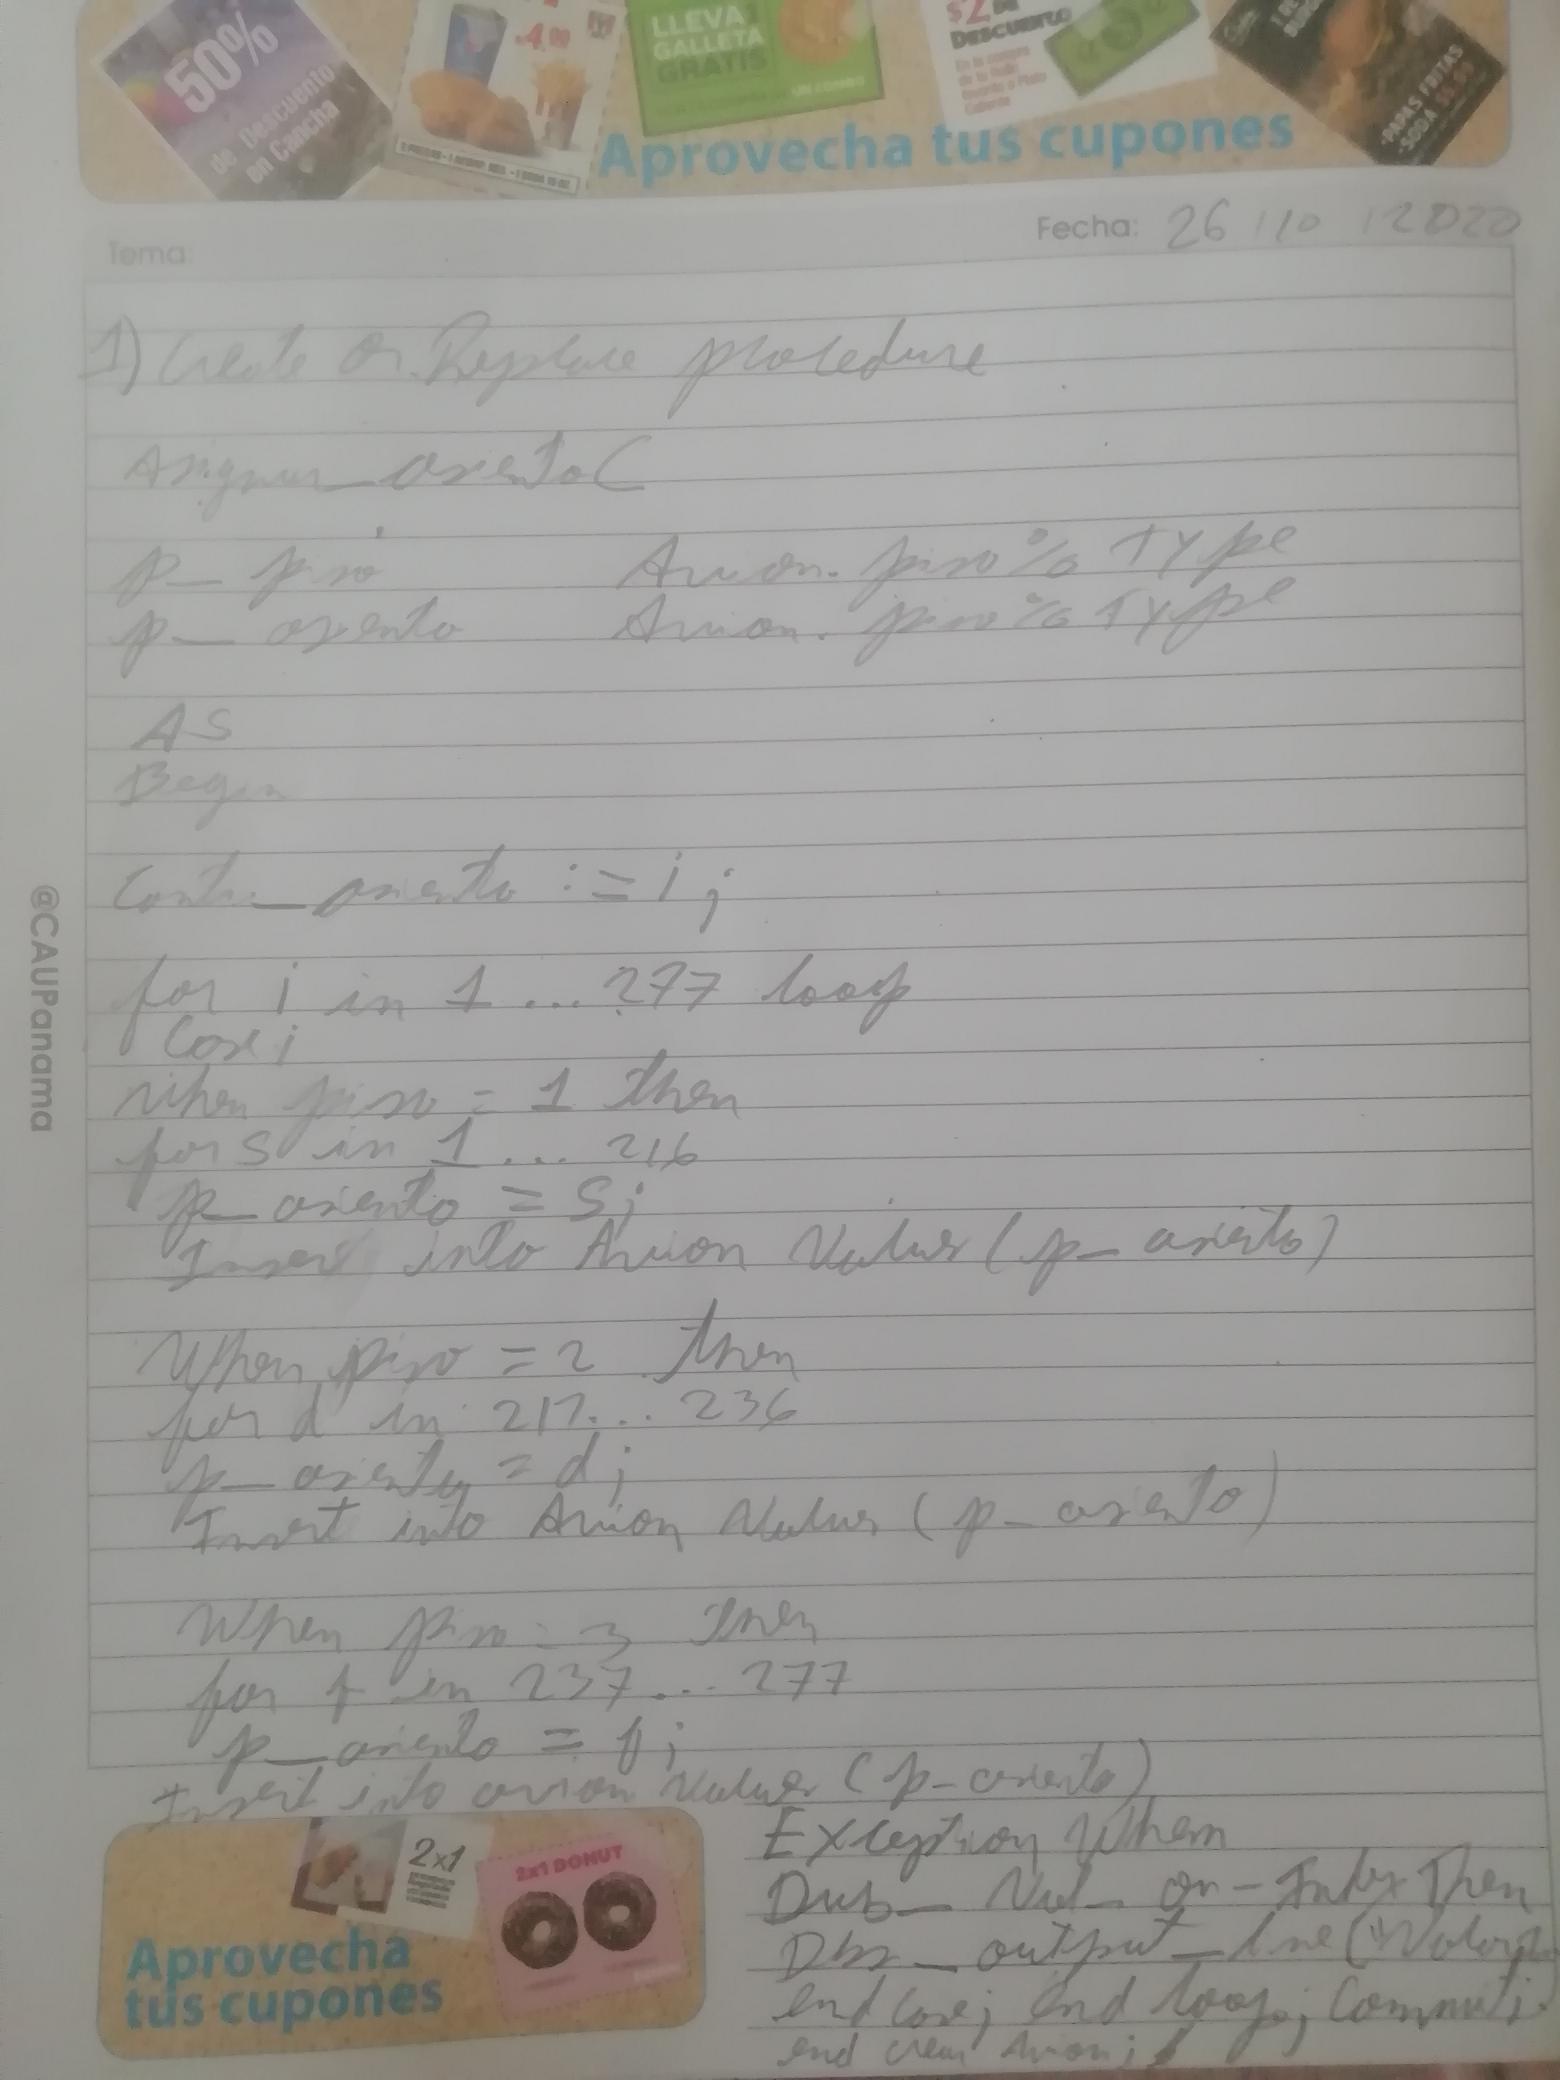 50%
de Descuento
en Cancha
$4.00
LLEVA 1
GALLETA
GRATIS
UN COMBO
$2 DE
DESCUENTO
PAPAS FRITAS
SODA
Aprovecha tus cupones
Tema:
Fecha: 26 / 10 / 2020
1) Create Or Replace procedure
Asignar_asiento (
p_piso Avion. piso % Type
p_asiento Avion. piso % Type
AS
Begin
_asiento := i;
for i in 1 ... 277 loop
Case i
When piso = 1 then
for S in 1 ... 216
p_asiento = S;
Insert into Avion Values (p_asiento)
When piso = 2 then
for d in 217... 236
p_asiento = d;
Insert into Avion Values (p_asiento)
When piso = 3 then
for f in 237... 277
p_asiento = f;
Insert into avion Values (p_asiento)
Exception When
Dup_Val_on-Index Then
output_line ("Valor
end case; end loop; Commit;
end crear Avion;
@CAUPanama
2x1
2x1 DONUT
Aprovecha
tus cupones